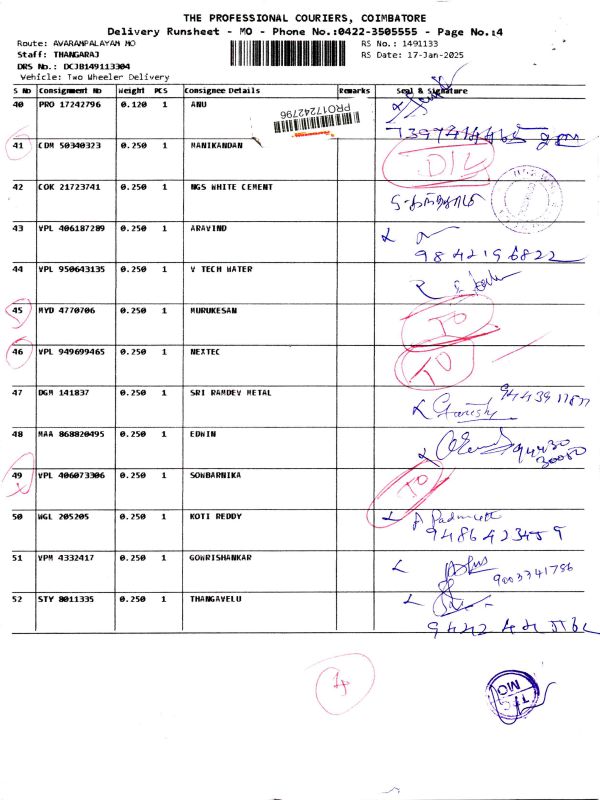 THE PROFESSIONAL COURIERS, COIMBATORE
Delivery Runsheet - MO - Phone No.:0422-3505555 - Page No.:4
Route: AVARAMPALAYAM MO RS No.: 1491133
Staff: THANGARAJ RS Date: 17-Jan-2025
DRS No.: DCJB149113304
Vehicle: Two Wheeler Delivery
S No Consignment No Weight PCS Consignee Details Remarks Seal & Signature
40 PRO 17242796 0.120 1 ANU
PRO17242796
41 CDM 50340323 0.250 1 MANIKANDAN D/L
42 COK 21723741 0.250 1 NGS WHITE CEMENT
43 VPL 406187289 0.250 1 ARAVIND
9842196822
44 VPL 950643135 0.250 1 V TECH WATER
45 MYD 4770706 0.250 1 MURUKESAN TO
46 VPL 949699465 0.250 1 NEXTEC TO
47 DGM 141837 0.250 1 SRI RAMDEV METAL
Ganesh
48 MAA 868820495 0.250 1 EDWIN
94430
30080
49 VPL 406073306 0.250 1 SOWBARNIKA TO
50 WGL 205205 0.250 1 KOTI REDDY
9486423459
51 VPM 4332417 0.250 1 GOWRISHANKAR
9003341786
52 STY 8011335 0.250 1 THANGAVELU
TPC
MO